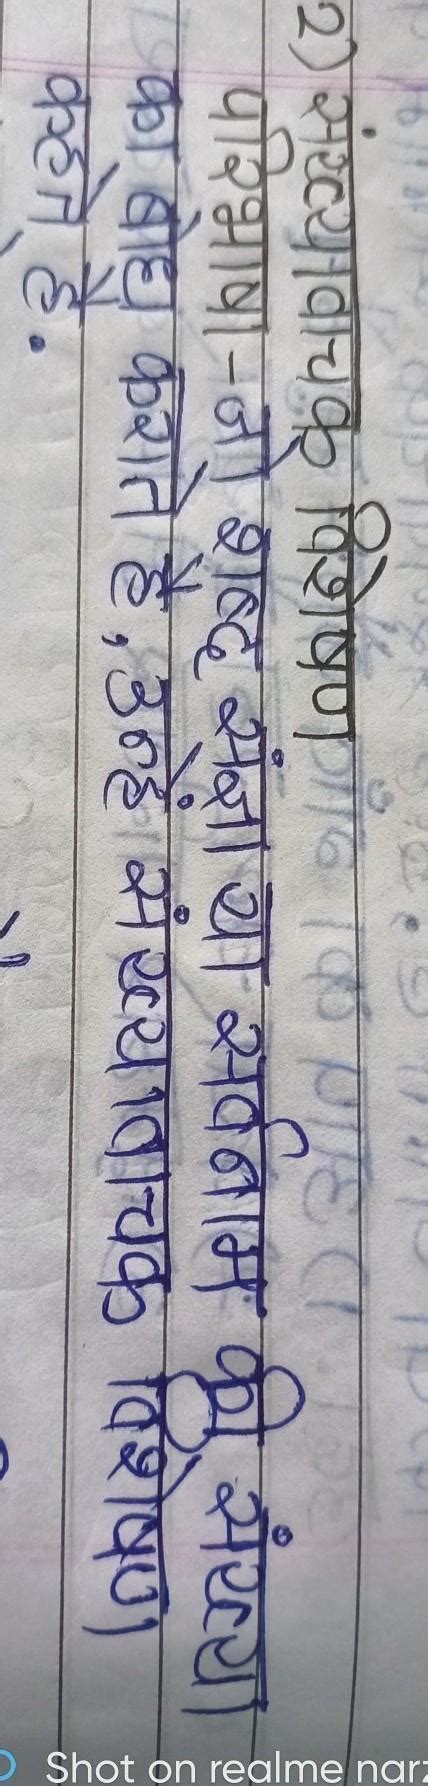 2) संख्यावाचक विशेषण
परिभाषा - जो शब्द संज्ञा या सर्वनाम की संख्या
का बोध कराते है, उन्हे संख्यावाचक विशेषण
कहते है.
Shot on realme narz